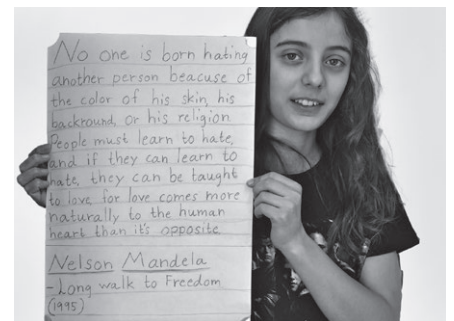 No one is born hating
another person beacuse of
the color of his skin, his
backround, or his religion
People must learn to hate,
and if they can learn to
hate, they can be taught
to love, for love comes more
naturally to the human
heart than it's opposite
Nelson Mandela
-Long walk to Freedom
(1995)